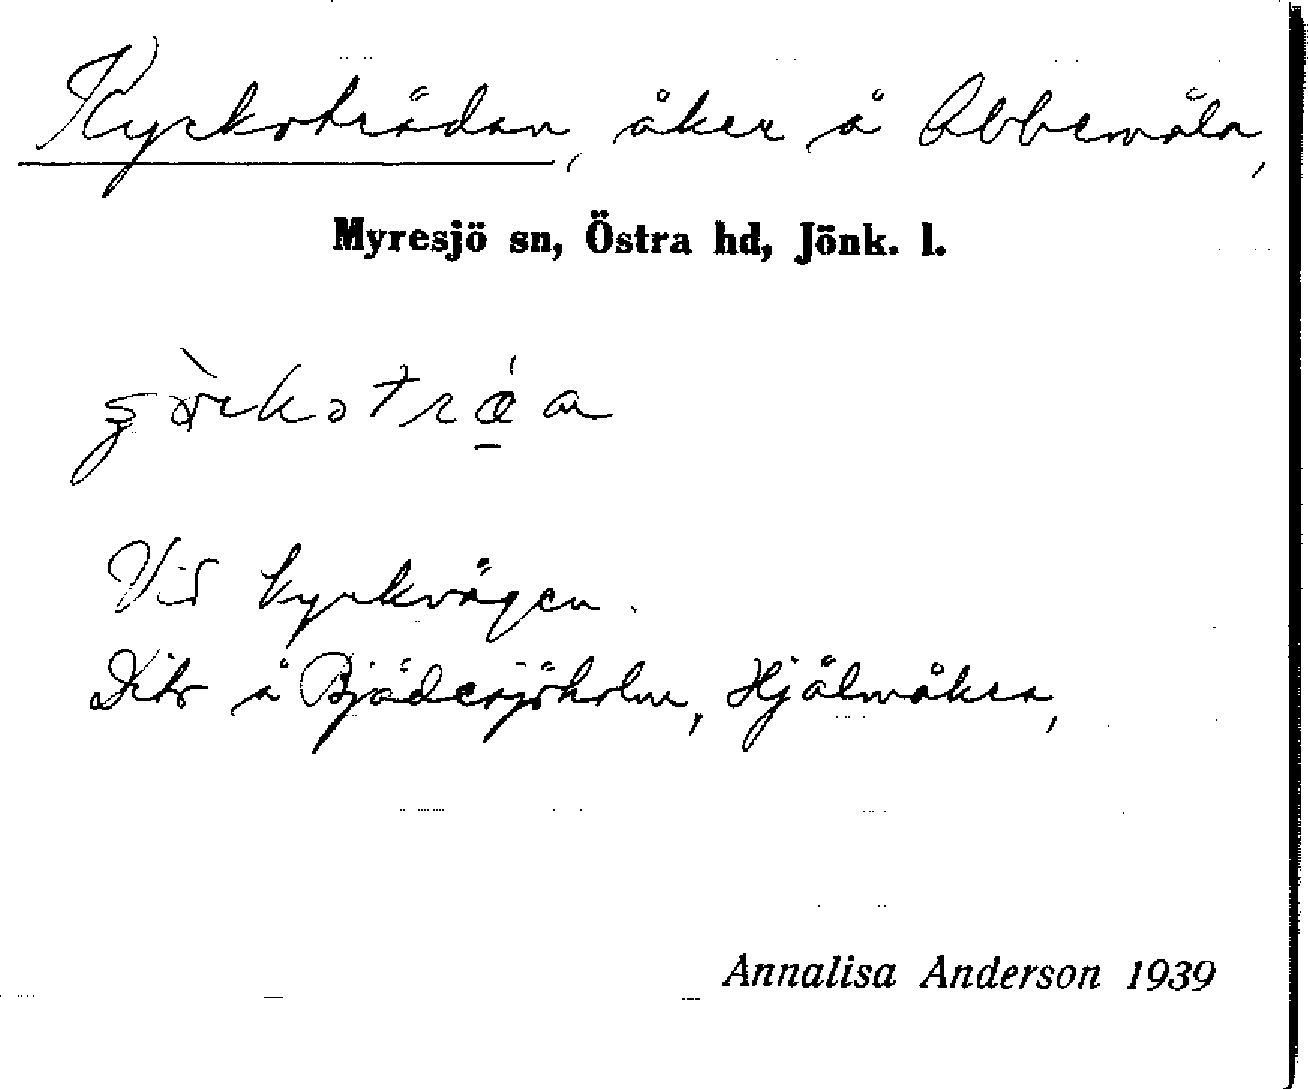 Kyrkoträdan, åker å Abbemåla,
Myresjö sn, Östra hd, Jönk. l.
Vid kyrkvägen.
Dito å Bjädesjöholm, Hjälmåkra,
Annalisa Anderson 1939